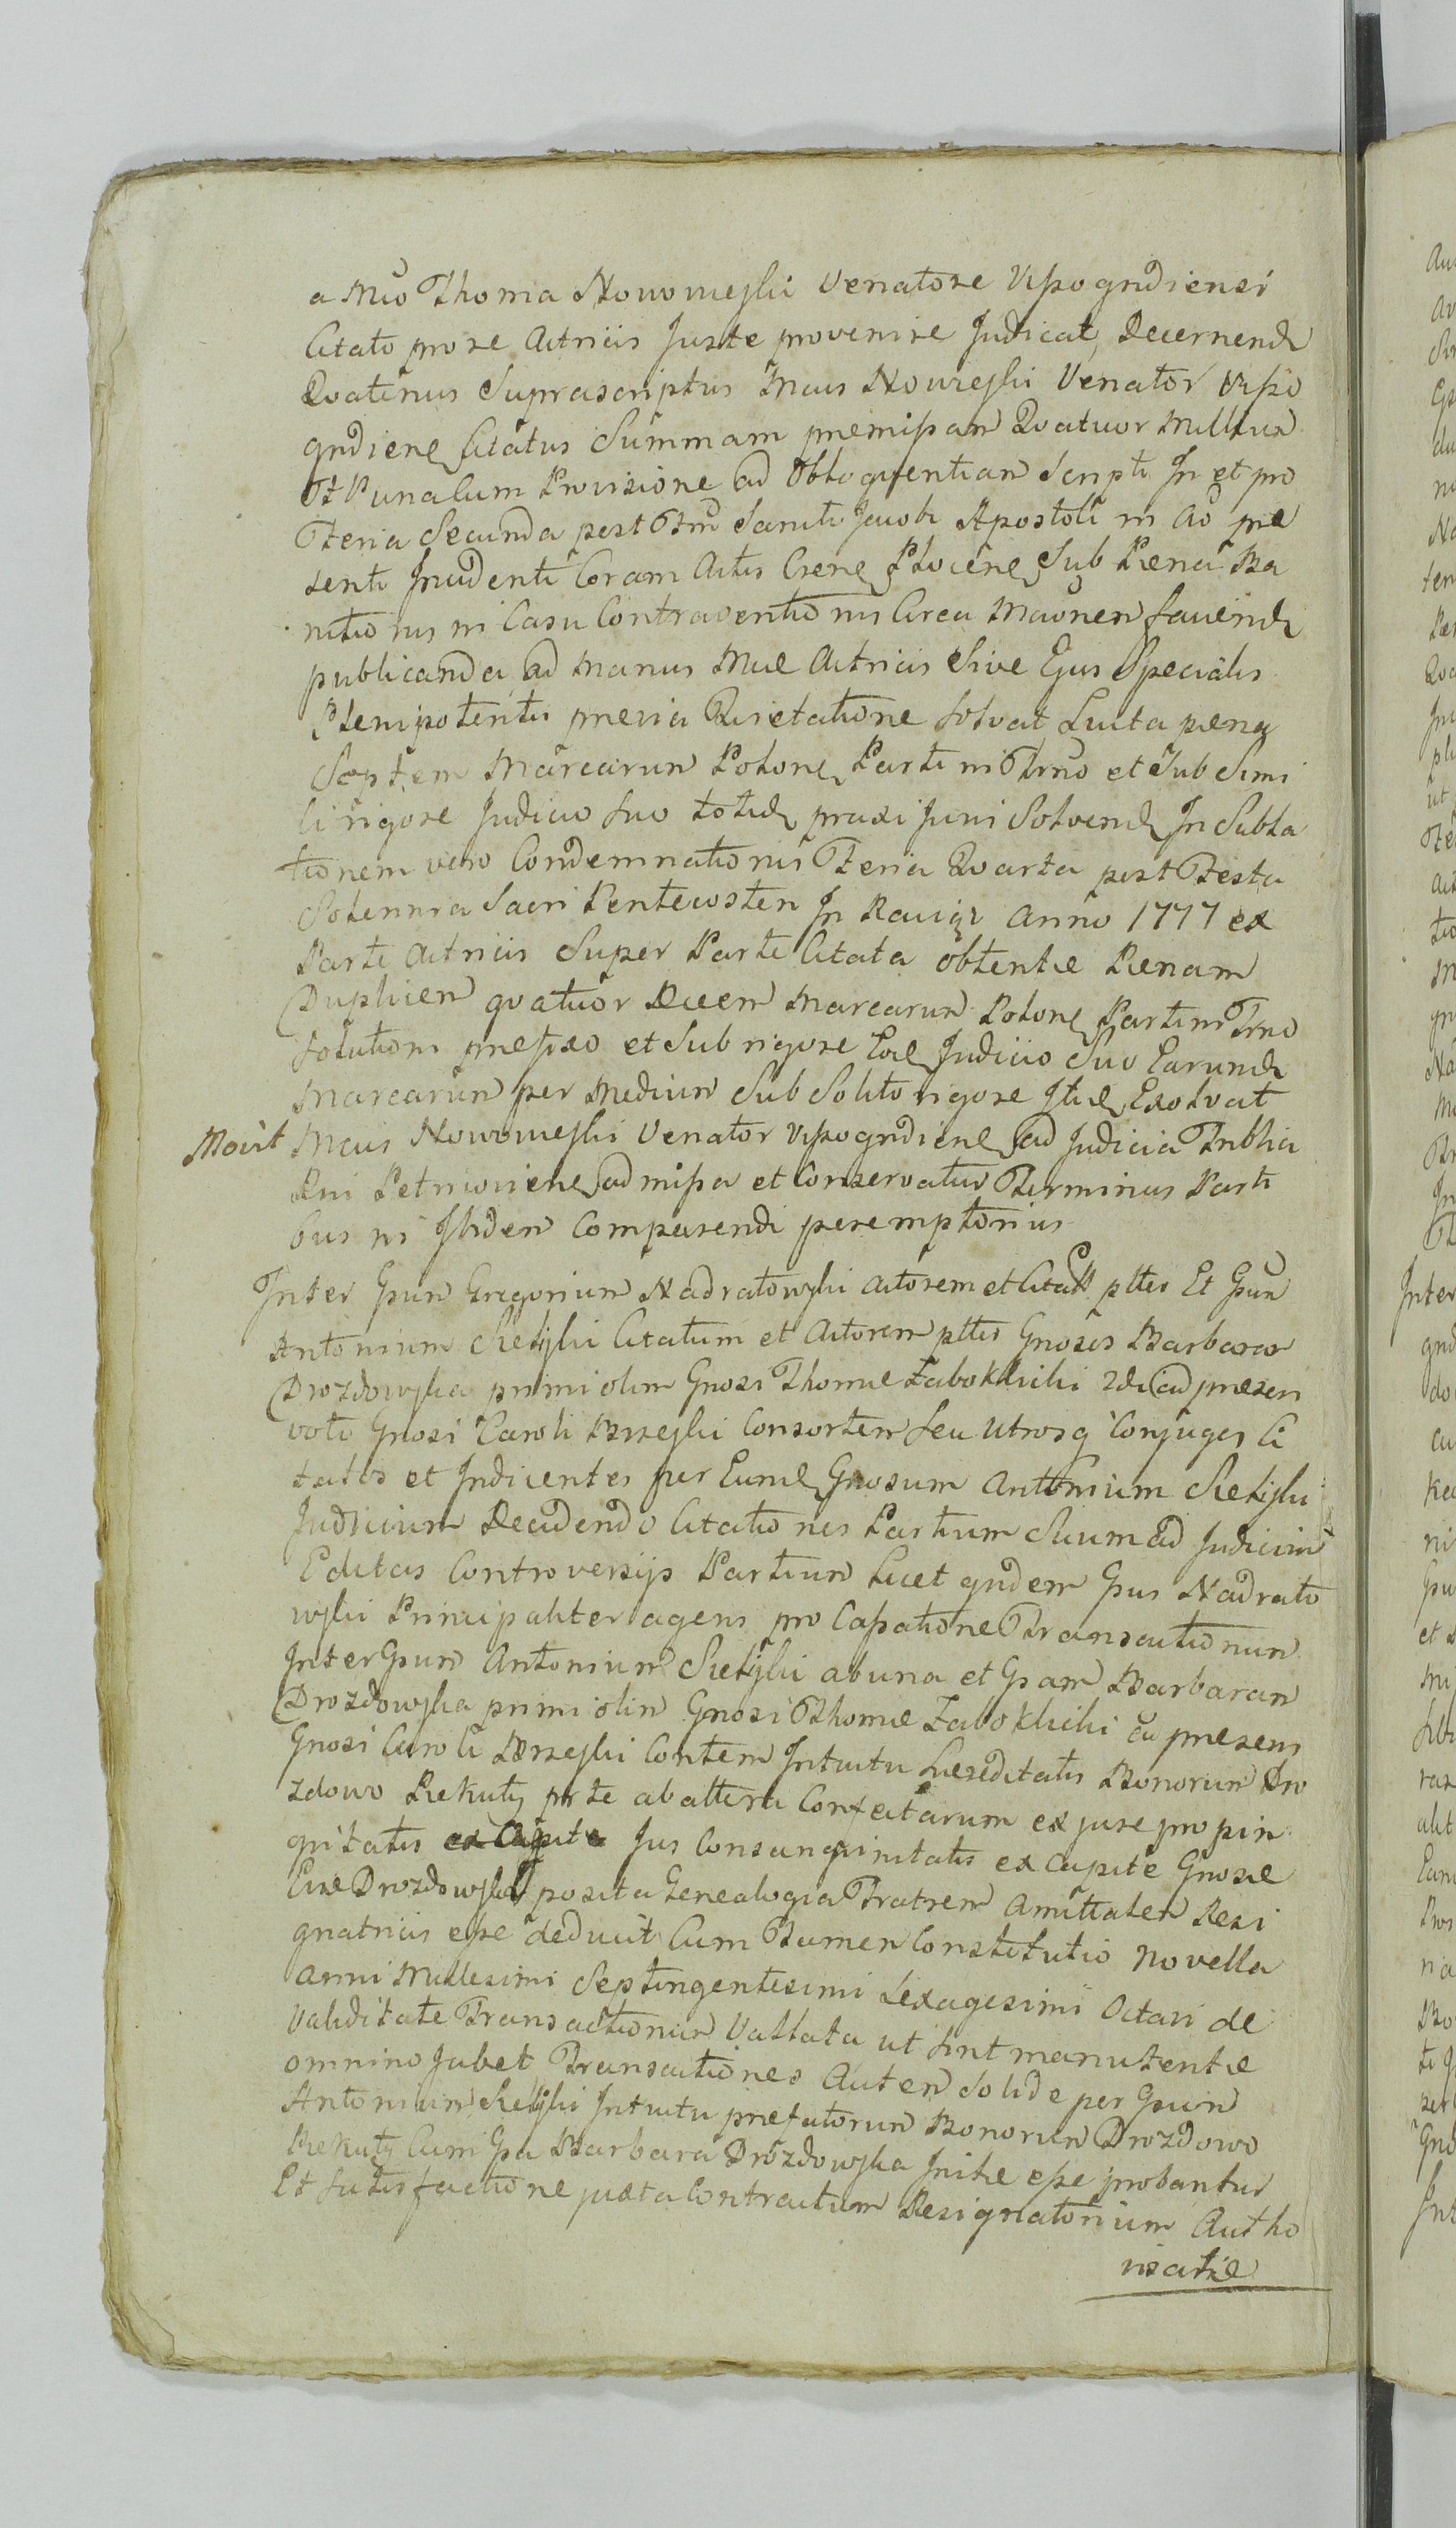 a Mco Thoma Nowowieyski Venatore Vissogrdiensi
Citato prore Actricis Juste provenire Judicat, Decernend
Qvatinus Suprascriptus Mcus Nowieyski Venator Visso
grdiens Citatus Summam premissam Qvatuor Millium
Ft Puna Cum Provisione ad Obloqventiam Scripti In et pro
Feria Secunda post Ftm Sancti Jacobi Apostoli in Ao pre
senti Incidenti Coram Actis Crens Plocens Sub Pena Ba
nitionis in Casu Contraventionis Circa Maonem faciend
publicanda, ad Manus Mcae Actricis Sive Ejus Specialis
Plenipotentis previa Qvietatione Solvat Luita pena
Septem Marcarum Polon Parti in Trno et Sub Simi
li rigore Judicio Suo totid praxi Juni Solvend In Subla
tionem vero Condemnationis Feria Qvarta post Festa
Solennia Sacri Pentecosten In Raciąż Anno 1777 ex
Parte Actricis Super Parte Citata obtentae Penam
Duplicem qvatuor Decem Marcarum Polon Parti in Trno
Solutioni prefixo et Sub rigore Eod Judicio Suo Earund
Marcarum per Medium Sub Solito rigore Itid Exolvat
Movit Mcus Nowowieyski Venator Vissogrdiens ad Judicia Triblia
Rni Petricoviens admissa et Conservatur Terminus Parti
bus in Ibidem Comparendi peremptorius
Inter Gsum Gregorium Nadratowski Actorem et Citatt pttis Et Gsum
Antonium Sielski Citatum et Actorem pttis Gnosos Barbaram
Drozdowska primi olim Gnosi Thomae Zaboklicki 2di ad presen
voti Gnosi Caroli Brzeski Consortem Seu Utrosq Conjuges Ci
tatos et Indicentes per Eund Gnosum Antonium Sielski
Judicium Decidendo Citationes Partium Suum ad Judicium
Editas Controversys Partium Licet qvdem Gsus Nadrato
wski Principaliter agens pro Cassatione Transactionum
Inter Gsum Antonium Sielski ab una et Gsam Barbaram
Drozdowska primi olim Gnosi Thomae Zaboklicki ad presens
Gnosi Caroli Brzeski Contem Intuitu Hereditatis Bonorum Dro
zdowo Rekuty prte ab altera Confectarum ex jure propin
qvitatis ex Capite Jus Consangvinitatis ex Capite Gnosae
Evae Drozdowska posita Genealogia Fratrem Amittalem Resi
gnatricis esse deducit Cum Tamen Constitutio Novella
Anni Millesimi Septingentesimi Sexagesimi Octavi de
Validitate Transactionum Vallata ut sint manutentae
omnino Jubet Transactiones Autem Solide per Gsum
Antonium Sielski Intuitu prefatorum Bonorum Drozdowo
Rekuty Cum Gsa Barbara Drozdowska Initae esse probantur
Et Satisfactione juxta Contractum Resignatorium Autho
risatae